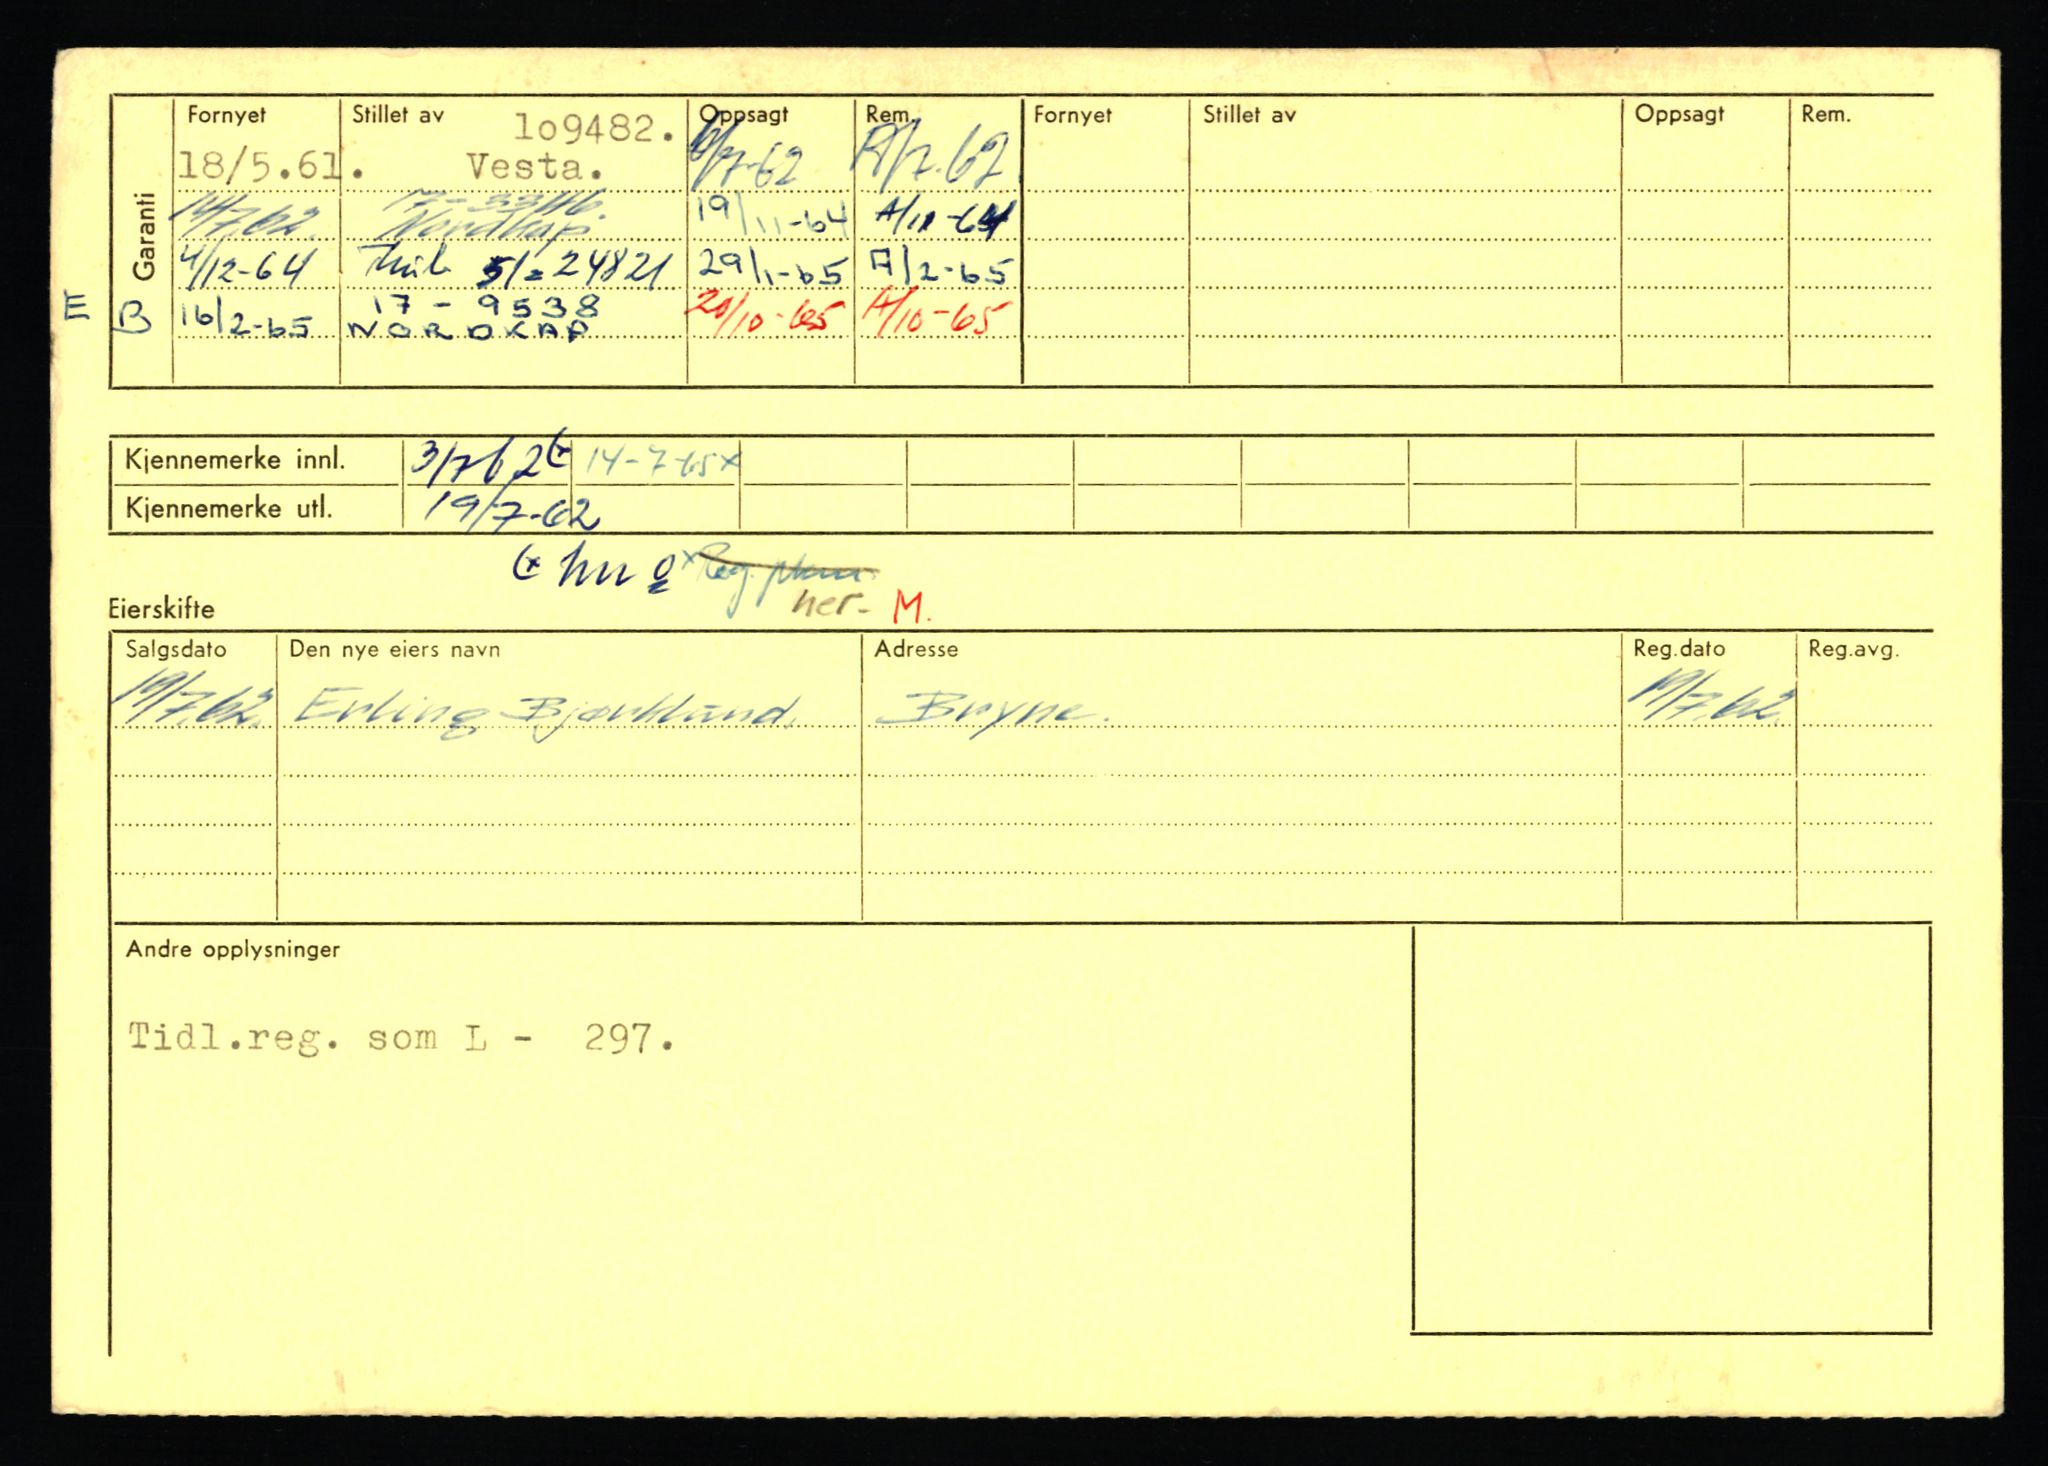 Garanti
Fornyet Stillet av Oppsagt Rem. Fornyet Stillet av Oppsagt Rem.
lo9482.
18/5.61. Vesta. /7-62 A/7.62
14/7.62. Nordkap 19/11-64 A/11-64
4/12-64 24821 29/1-65 A/2-65
E B 16/2-65 17-9538 20/10-65 A/10-65
NORDKAP
Kjennemerke innl. 3/7 62 (x 14-7-65 x
Kjennemerke utl. 19/7-62
(x x Reg.
her- M.
Eierskifte
Salgsdato Den nye eiers navn Adresse Reg.dato Reg.avg.
19/7.62. Erling Bjørklund. Bryne. 19/7.62.
Andre opplysninger
Tidl.reg. som L - 297.